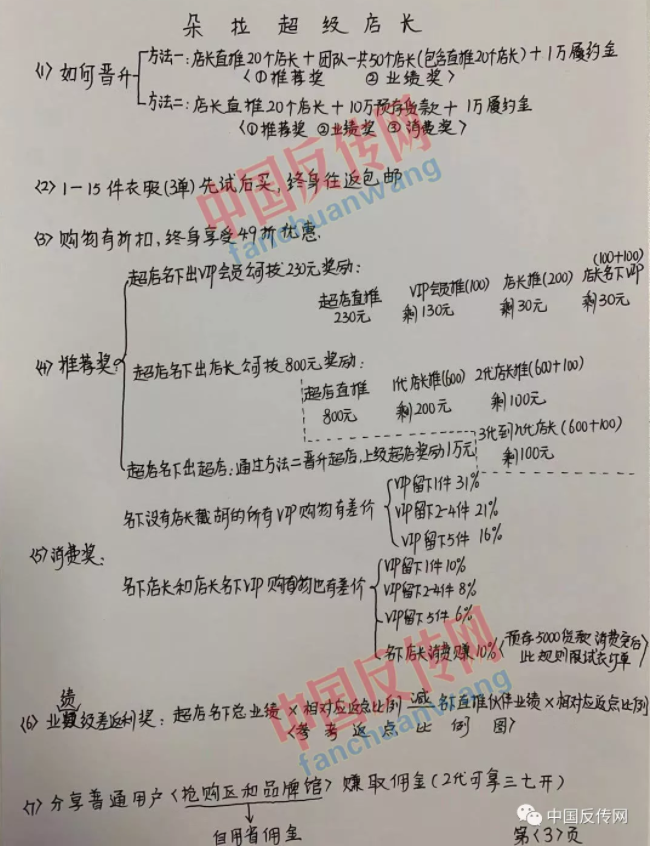 朵拉超级店长
方法一:店长直推20个店长+团队一共50个店长(包含直推20个店长)+1万履约金
<1>如何晋升
<①推荐奖 ②业绩奖>
方法二:店长直推20个店长+10万预存货款+1万履约金
<①推荐奖 ②业绩奖 ③消费奖>
<2>1-15件衣服(3单)先试后买,终身往返包邮
<3>购物有折扣,终身享受49折优惠.
超店名下出VIP会员均可按230元奖励:
(100+100)
超店直推 VIP会员推(100) 店长推(200) 店长名下VIP
230元 剩130元 剩30元 剩30元
<4>推荐奖:
超店名下出店长均可按800元奖励:
超店直推 1代店长推(600) 2代店长推(600+100)
800元 剩200元 剩100元
3代到n代店长(600+100)
剩100元
超店名下出超店:通过方法二晋升超店,上级超店奖励1万元
VIP留下1件31%
名下没有店长戴胡的所有VIP购物有差价
VIP留下2-4件21%
VIP留下5件16%
<5>消费奖:
VIP留下1件10%
名下店长和店长名下VIP购物也有差价
VIP留下2-4件8%
VIP留下5件6%
名下店长消费赚10%<预存5000货款消费完后
此规则限试衣订单>
绩
<6>业级差返利奖:超店名下总业绩×相对应返点比例 减 名下直推伙伴业绩×相对应返点比例
<参考返点比例图>
<7>分享普通用户<抢购区和品牌馆>赚取佣金(2代可享三七开)
自用省佣金
第<3>页
中国反传网
fanchuanwang
中国反传网
fanchuanwang
中国反传网